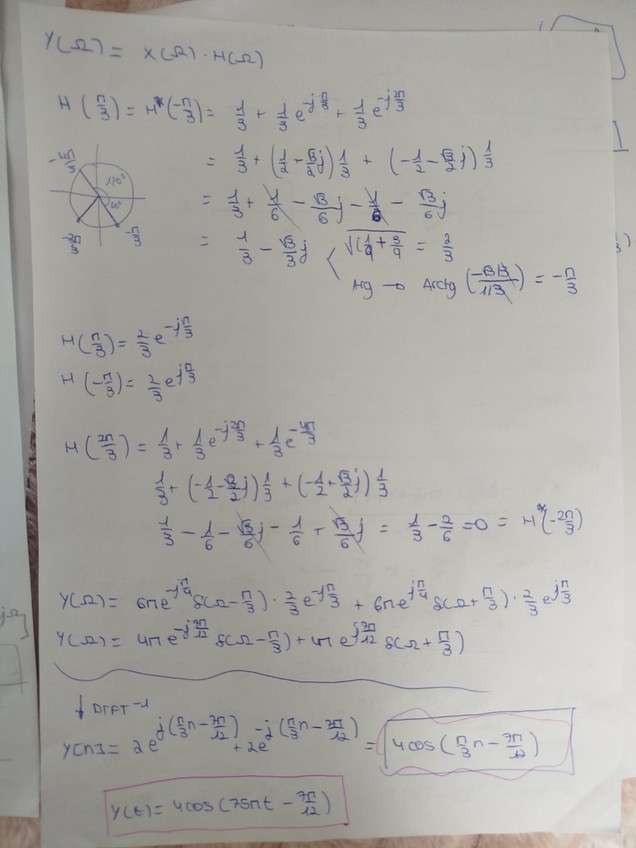 Y(Ω) = X(Ω) · H(Ω)
H(π/3) = H*(-π/3) = 1/3 + 1/3 e^{-jπ/3} + 1/3 e^{-j2π/3}
= 1/3 + (1/2 - √3/2 j) 1/3 + (-1/2 - √3/2 j) 1/3
= 1/3 + 1/6 - √3/6 j - 1/6 - √3/6 j
= 1/3 - √3/3 j √(1/9 + 3/9) = 2/3
Arg → Arctg (-√3/3 / 1/3) = -π/3
-2π/3
-π/3
H(π/3) = 2/3 e^{-jπ/3}
H(-π/3) = 2/3 e^{jπ/3}
H(2π/3) = 1/3 + 1/3 e^{-j2π/3} + 1/3 e^{-4π/3}
1/3 + (-1/2 - √3/2 j) 1/3 + (-1/2 + √3/2 j) 1/3
1/3 - 1/6 - √3/6 j - 1/6 + √3/6 j = 1/3 - 2/6 = 0 = H*(-2π/3)
Y(Ω) = 6π e^{-jπ/4} δ(Ω - π/3) · 2/3 e^{-jπ/3} + 6π e^{jπ/4} δ(Ω + π/3) · 2/3 e^{jπ/3}
Y(Ω) = 4π e^{-j7π/12} δ(Ω - π/3) + 4π e^{j7π/12} δ(Ω + π/3)
↓ DTFT -1
Y[n] = 2e^{j(π/3 n - 7π/12)} + 2e^{-j(π/3 n - 7π/12)} = 4cos(π/3 n - 7π/12)
Y(t) = 4cos(75πt - 7π/12)